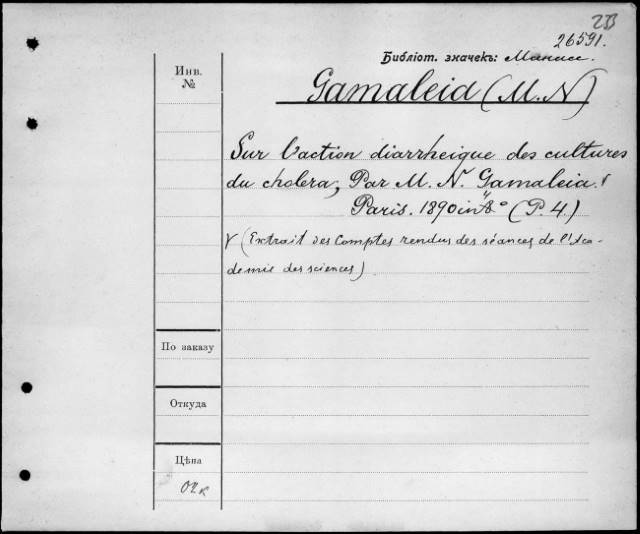 26591.
Библіот. значекъ:
Инв.
№
Gamaleia (M. N)
Sur l'action diarrheique des cultures
du cholera; Par M. N. Gamaleia.
Paris. 1890 in 8° (P. 4.)
(Extrait des Comptes rendus des séances de l'Aca-
demie des sciences)
По заказу
Откуда
Цѣна